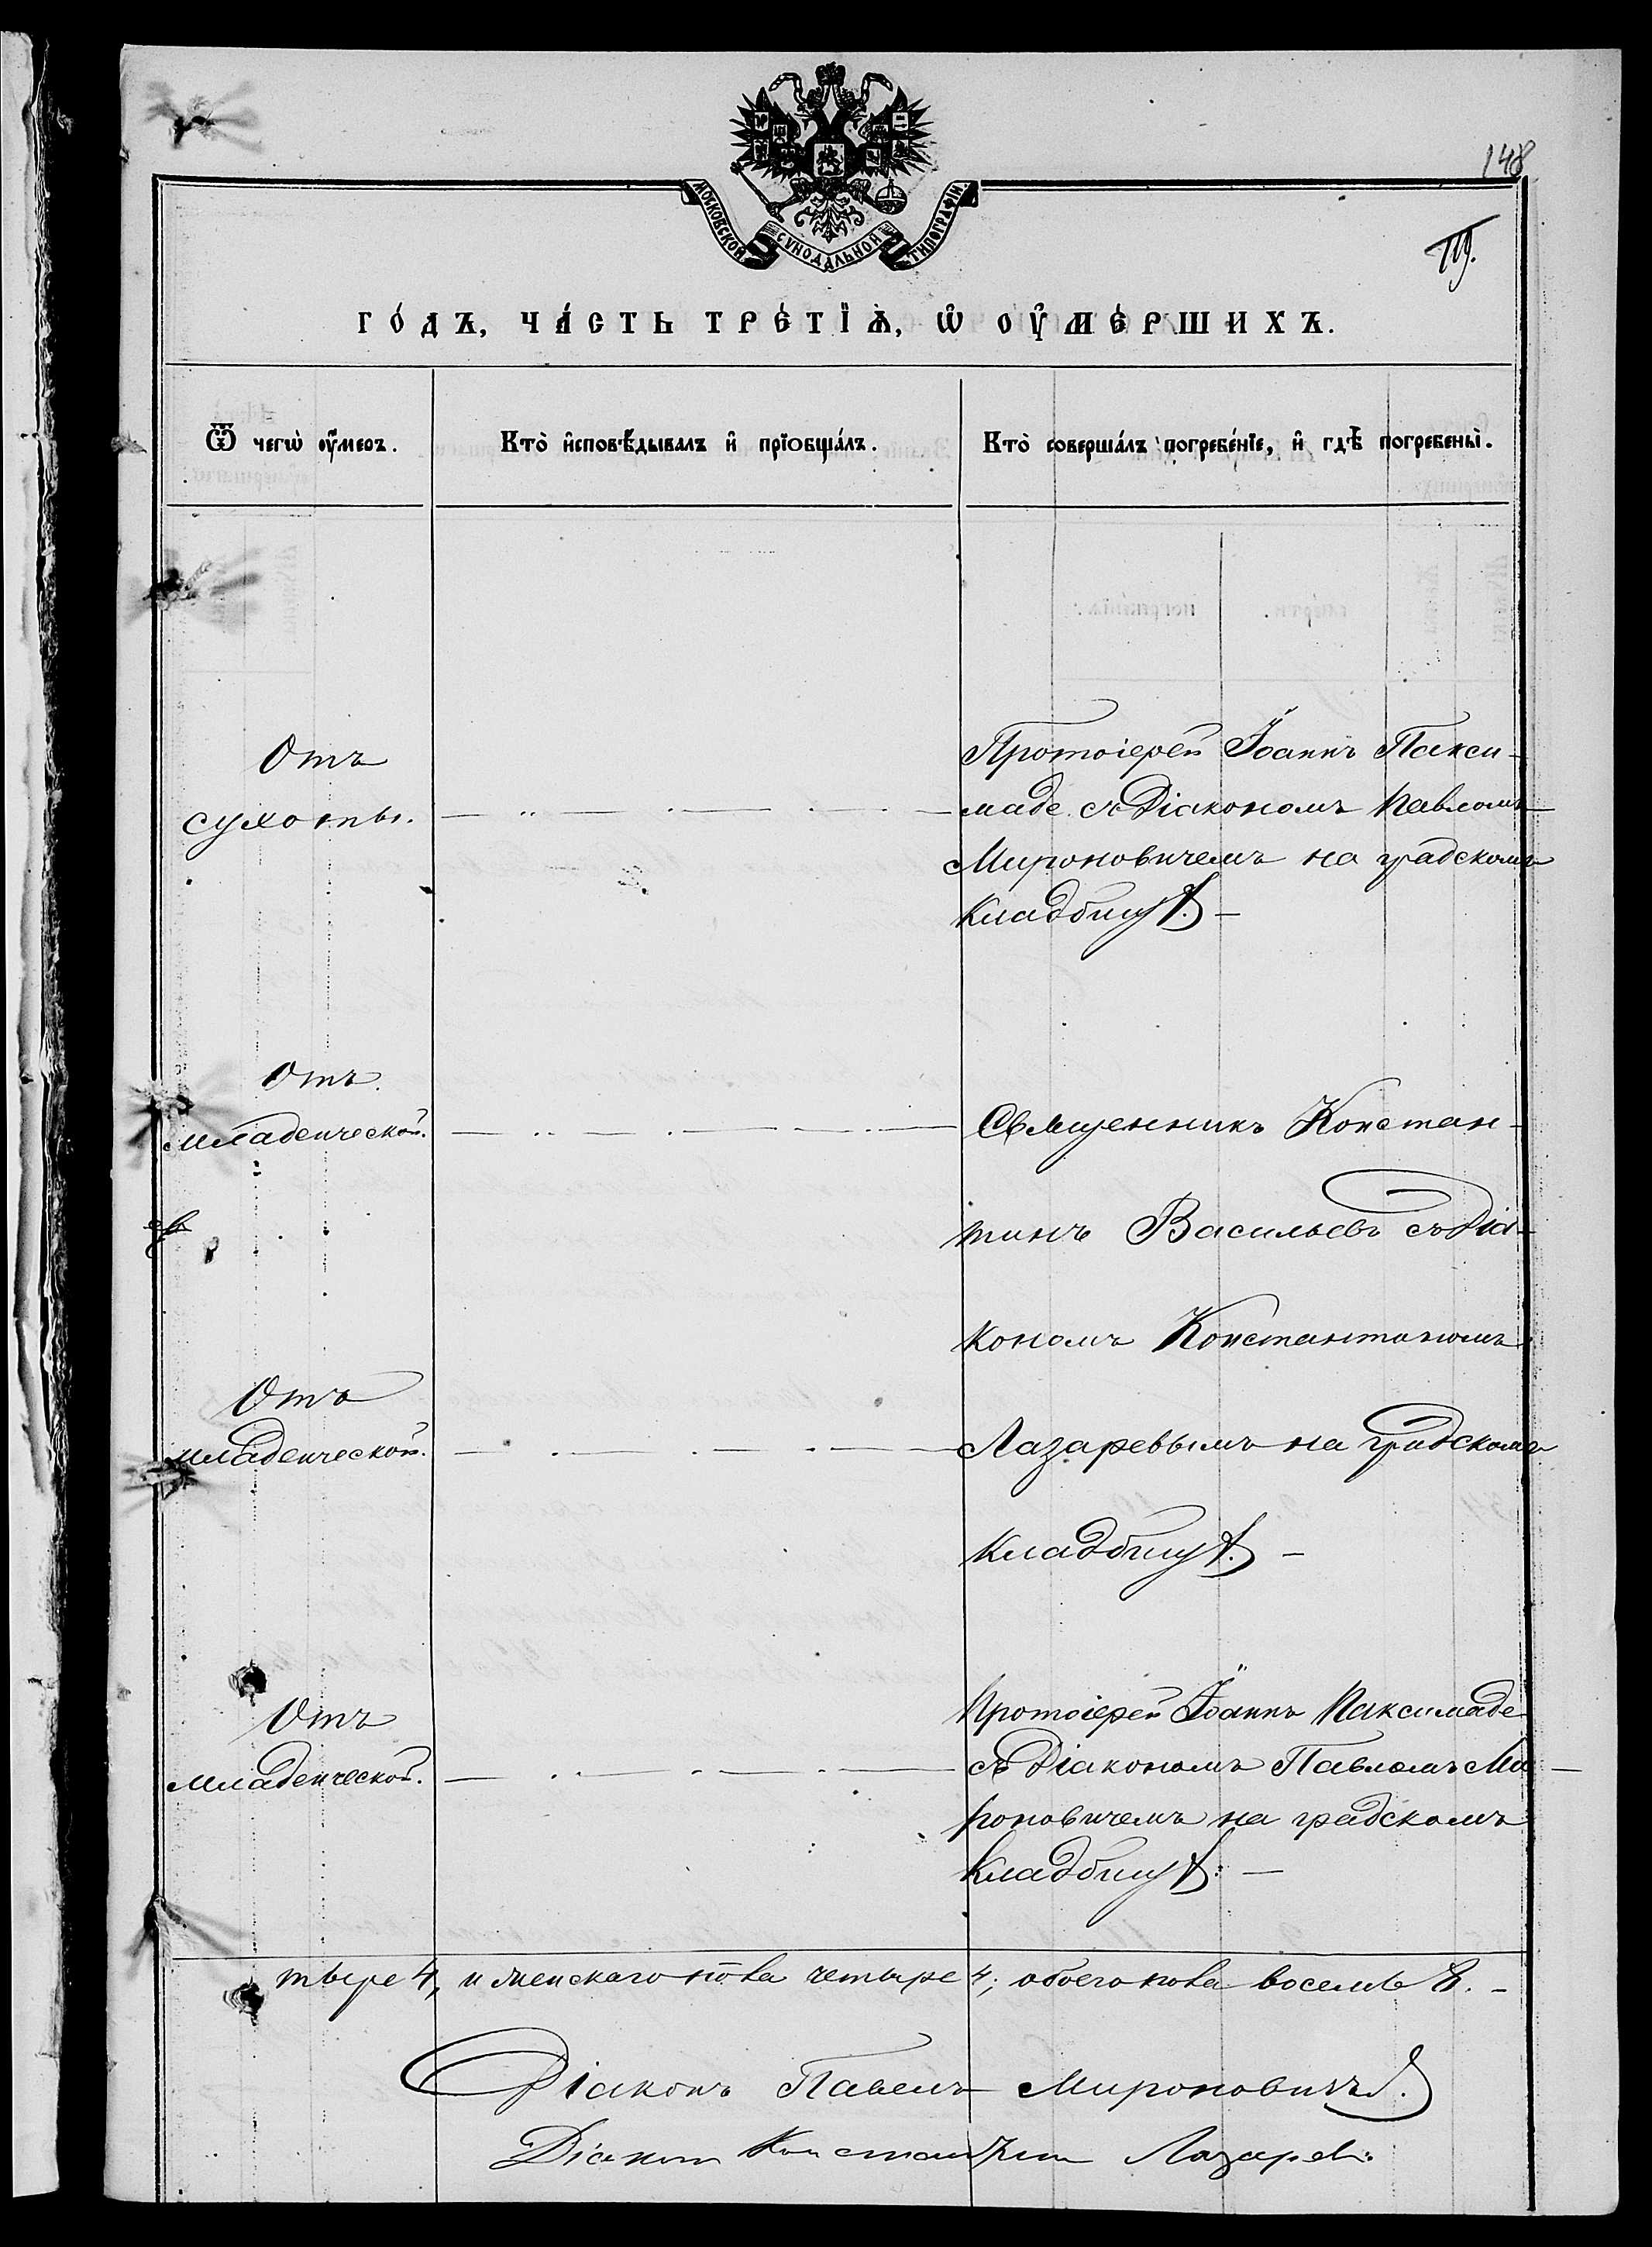 148
МОСКОВСКОЙ СѴНОДАЛЬНОЙ ТИПОГРАФІИ
го́дъ, ча́сть тре́тїѧ, ѡ҆ оу҆ме́ршихъ.
Ѿ чегѡ̀ оу҆́меръ.
Кто̀ и҆сповѣ́дывалъ и҆ прїобща́лъ.
Кто̀ соверша́лъ погребе́нїе, и҆ гдѣ̀ погребены̀.
Отъ
сухотъ.
Протоіерей Іоаннъ Пакси-
маде съ Діакономъ Павломъ
Мироновичемъ на градскомъ
кладбищѣ. –
Отъ
младенческой.
Священникъ Констан-
тинъ Васильевъ съ Діа-
кономъ Константиномъ
Отъ
младенческой.
Лазаревымъ на градскомъ
кладбищѣ. –
Отъ
младенческой.
Протоіерей Іоаннъ Паксимаде
съ Діакономъ Павломъ Ми-
роновичемъ на градскомъ
кладбищѣ. –
тыре 4, и женскаго пола четыре 4; обоего пола восемь 8. –
Діаконъ Павелъ Мироновичъ.
Діаконъ Константинъ Лазаревъ